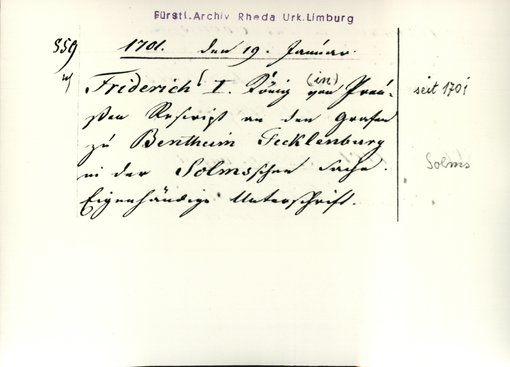 Fürstl. Archiv Rheda Urk. Limburg
859
1701. den 19. Januar.
Friderich I. König (in) von Preu-
ßen Rescript an den Grafen
zu Bentheim Tecklenburg
in der Solmsschen Sache.
Eigenhändige Unterschrift.
seit 1701
Solms